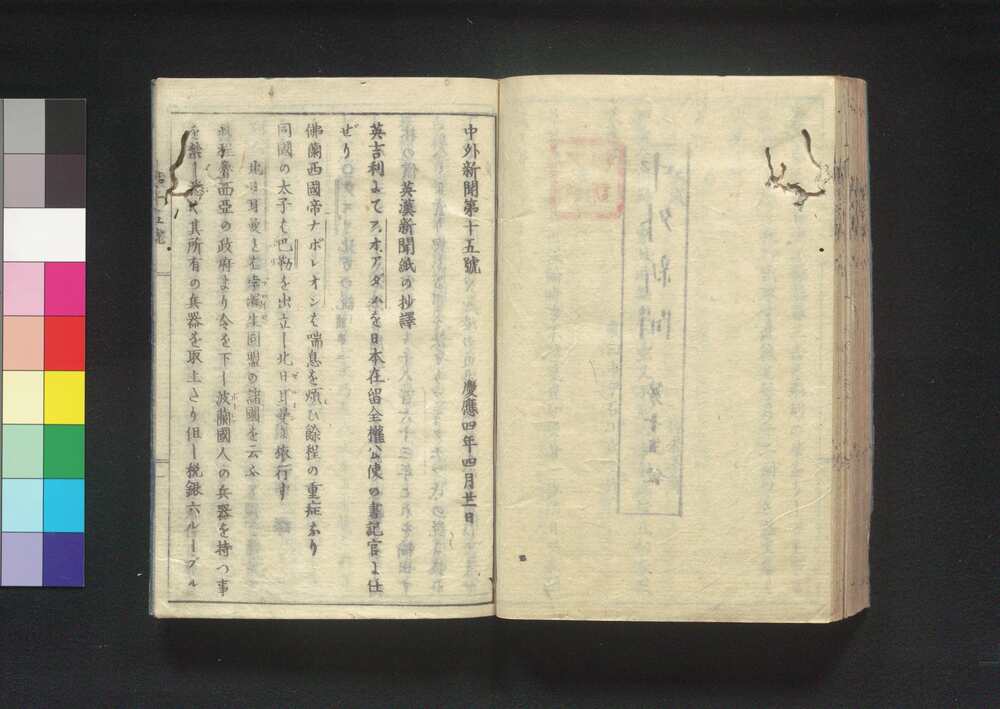 中外新聞第十五號　慶應四年四月廿一日
英漢新聞紙の抄譯
英吉利よてアオアダムを日本在留全權公使の書記官よ仕
ぜり
佛蘭西國帝ナポレオンも喘息を煩ひ餘程の重症あり
同國の太子も巴勒を出立し北日耳曼に旅行す
北日耳曼とは孛漏生同盟の諸國を云ふ
魯西亞の政府より令を下し波蘭國人の兵器を持つ事
を禁し其所有の兵器を取上たり但し税銀六ルーブル